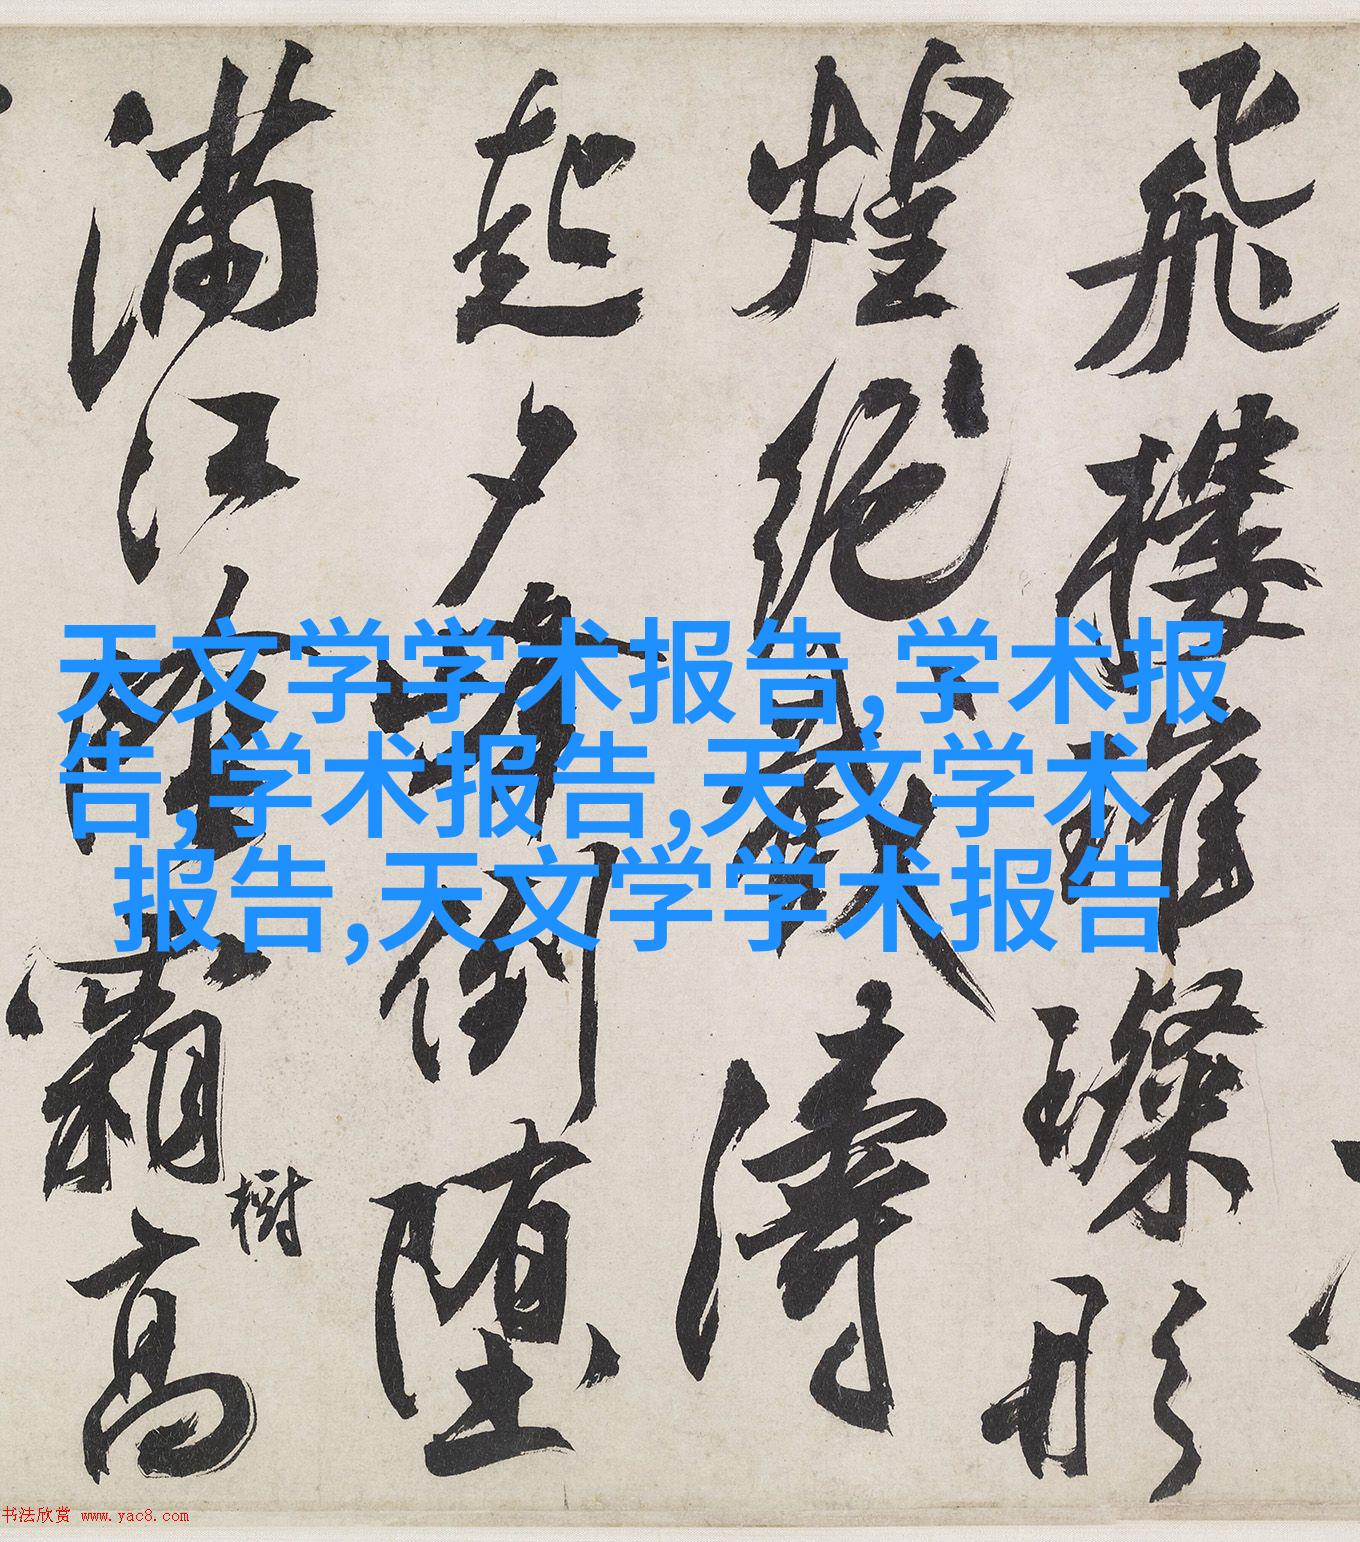 飛樓璀璨
煌絕濤
起夕倒墮
滿江霜高
樹
天文学学术报告,学术报
告,学术报告,天文学术
报告,天文学学术报告
书法欣赏 www.yac8.com